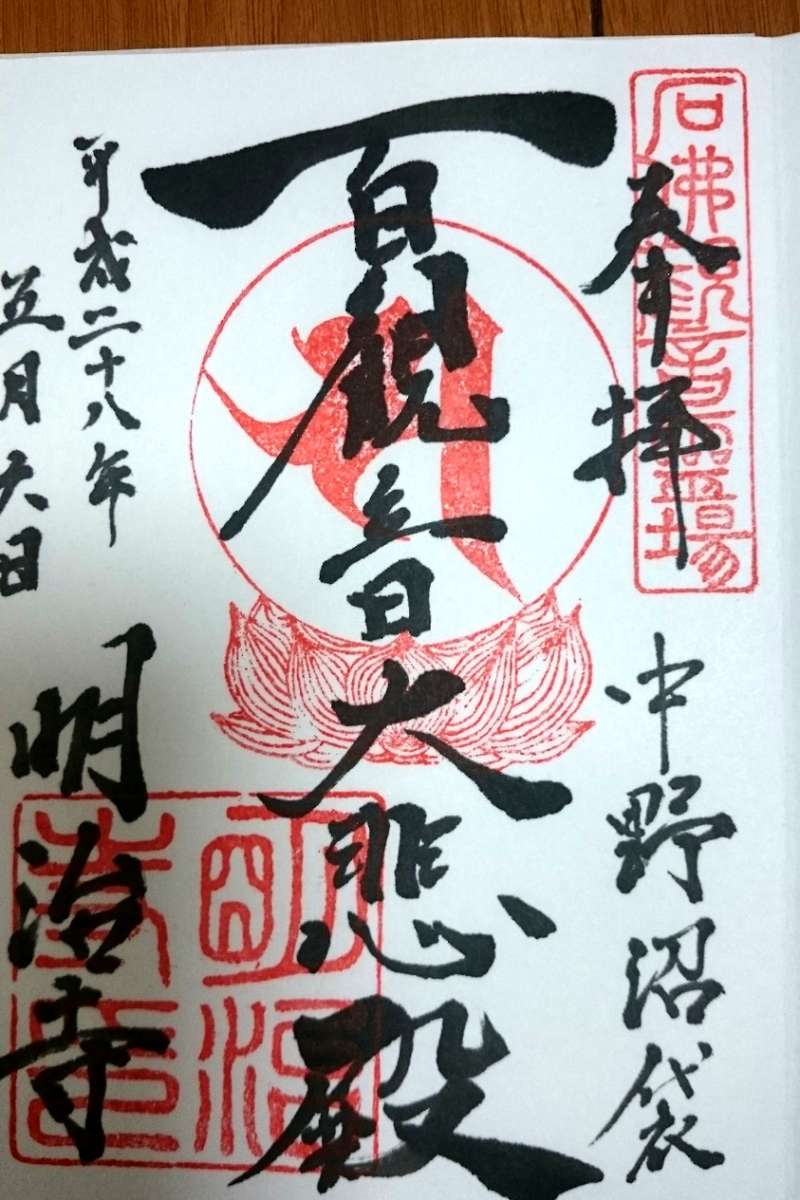 石佛観音霊場
奉拝
中野沼袋
百観音大悲殿
平成二十八年
五月六日
明治寺
明治
寺印